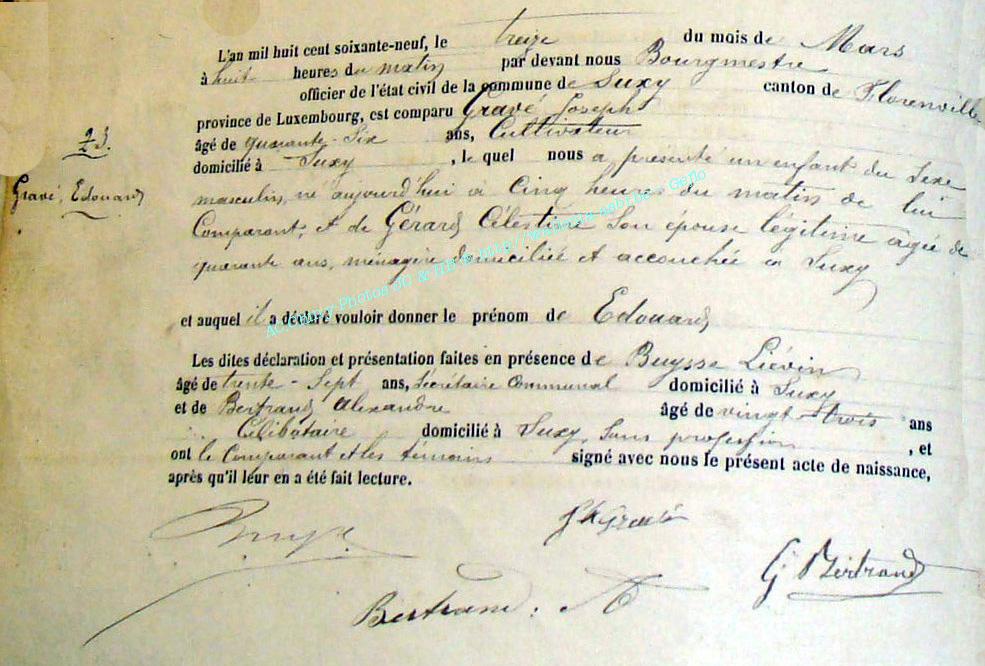 L'an mil huit cent soixante-neuf, le treize du mois de Mars
à huit heures du matin par devant nous Bourgmestre
officier de l'état civil de la commune de Suxy canton de Florenville
province de Luxembourg, est comparu Gravé Joseph
âgé de quarante-six ans, Cultivateur
domicilié à Suxy, le quel nous a présenté un enfant du sexe
23.
Gravé, Edouard
masculin, né aujourd'hui à Cinq heures du matin de lui
Comparant, et de Gérard Célestine son épouse légitime agée de
quarante ans, ménagère domiciliée et accouchée à Suxy
et auquel il a déclaré vouloir donner le prénom de Edouard
Les dites déclaration et présentation faites en présence de Buysse Liévin
âgé de trente-Sept ans, Secrétaire Communal domicilié à Suxy
et de Bertrand Alexandre âgé de vingt-trois ans
Célibataire domicilié à Suxy, Sans profession, et
ont le Comparant et les témoins signé avec nous le présent acte de naissance,
après qu'il leur en a été fait lecture.
Gravé
Buysse
G Bertrand
Bertrand. A